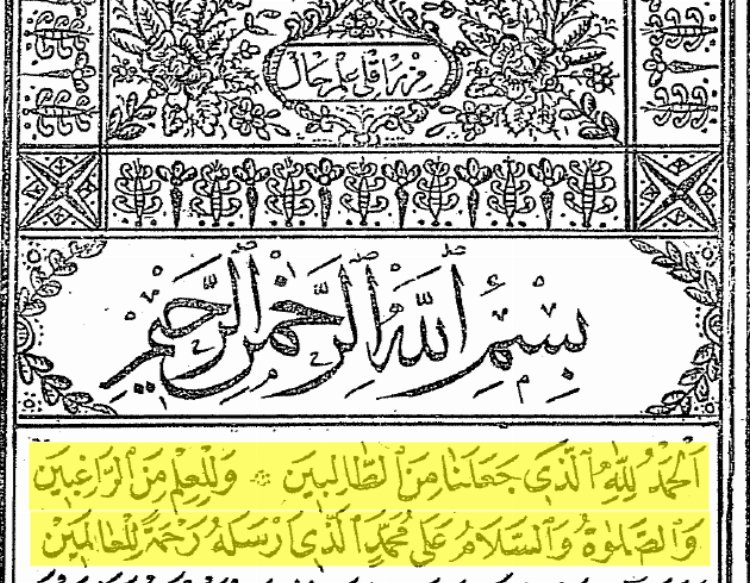 بِسْمِ اللّٰهِ الرَّحْمٰنِ الرَّحِيمِ
اَلْحَمْدُ لِلّٰهِ الَّذٖى جَعَلَنَا مِنَ الطَّالِبٖينَ ۞ وَلِلْعِلْمِ مِنَ الرَّاغِبٖينَ
وَالصَّلٰوةُ وَالسَّلَامُ عَلٰى مُحَمَّدٍ الَّذٖى اَرْسَلَهُ رَحْمَةً لِلْعَالَمٖينَ